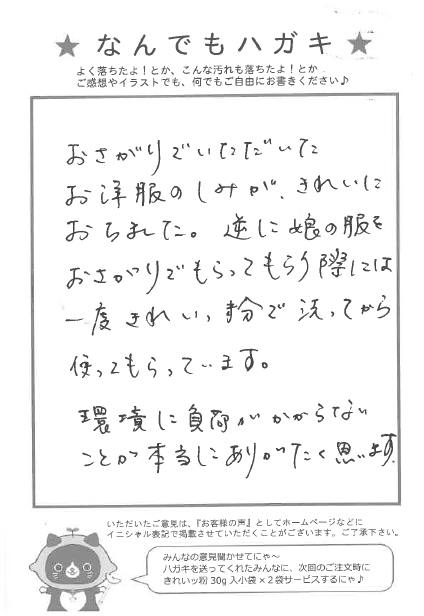 ★ なんでもハガキ ★
よく落ちたよ！とか、こんな汚れも落ちたよ！とか
ご感想やイラストでも、何でもご自由にお書きください♪
おさがりでいただいた
お洋服のしみが、きれいに
おちました。逆に娘の服を
おさがりでもらってもらう際には
一度きれいッ粉で洗ってから
使ってもらっています。
環境に負荷がかからない
ことが本当にありがたく思います。
いただいたご意見は、『お客様の声』としてホームページなどに
イニシャル表記で掲載させていただくことがございます。ご了承下さい。
みんなの意見聞かせてにゃ～
ハガキを送ってくれたみんなに、次回のご注文時に
きれいッ粉 30g 入小袋×２袋サービスするにゃ♪